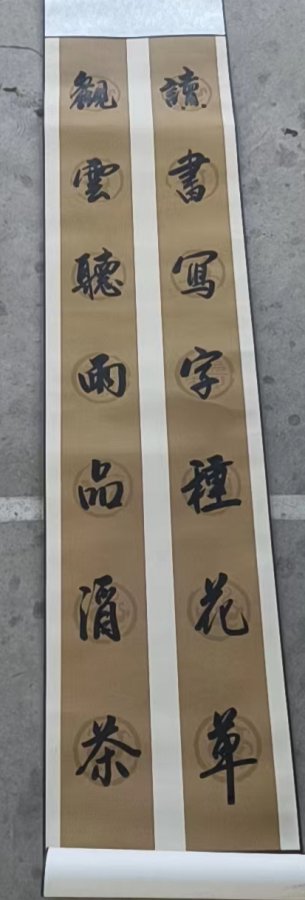 讀書寫字種花草
觀雲聽雨品酒茶